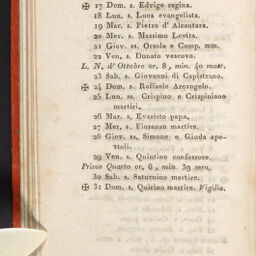 ✠ 17 Dom. s. Edvige regina.
18 Lun. s. Luca evangelista.
19 Mar. s. Pietro d' Alcantara.
20 Mer. s. Massimo Levita.
21 Giov. ss. Orsola e Comp. mm.
22 Ven. s. Donato vescovo.
L. N. d' Ottobre or. 8, min. 40 matt.
23 Sab. s. Giovanni di Capistrano.
✠ 24 Dom. s. Raffaele Arcangelo.
25 Lun. ss. Crispino e Crispiniano
martiri.
26 Mar. s. Evaristo papa.
27 Mer. s. Fiorenzo martire.
28 Giov. ss. Simone e Giuda apo-
stoli.
29 Ven. s. Quintino confessore.
Primo Quarto or. 6, min. 39 sera.
30 Sab. s. Saturnino martire.
✠ 31 Dom. s. Quirino martire. Vigilia.